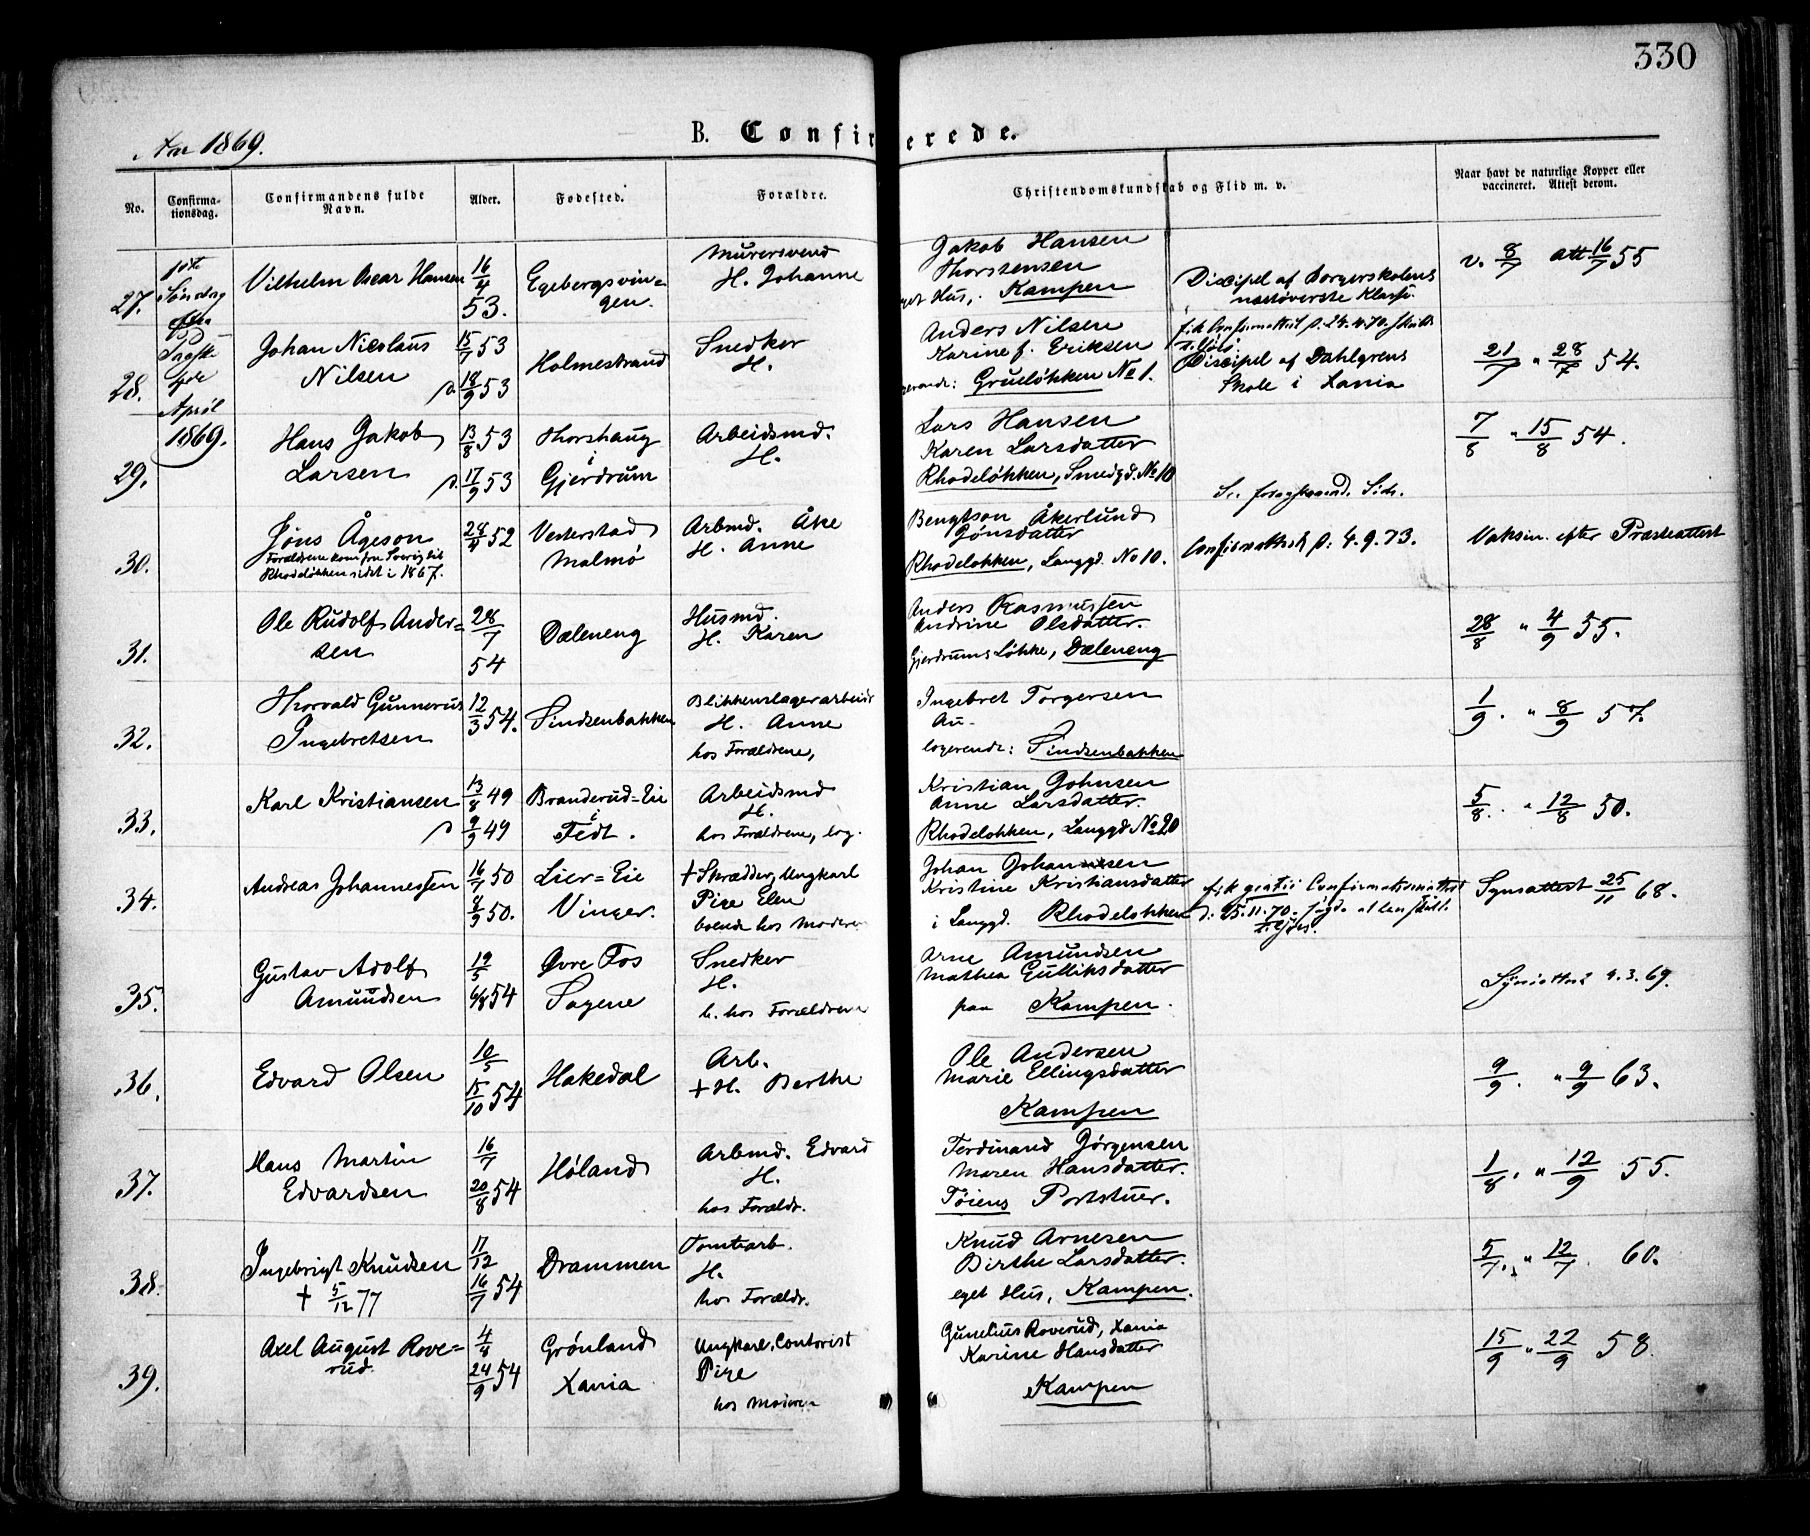 330
Aar 1869.
B. Confirmerede.
No.
Confirma-
tionsdag.
Confirmandens fulde
Navn.
Alder.
Fødested.
Forældre.
Christendomskundskab og Flid m. v.
Naar havt de naturlige Kopper eller
vaccineret. Attest derom.
1ste
Søndag
efter
Paaske
April
1869.
27.
Vilhelm Oscar Hansen
16/4
53.
Egebergsvin=
gen.
Murersvend
H. Johanne
Jakob Hansen
Thorstensen
eget Hus, Kampen
Discipel af Borgerskolens
næstøverste Klasse.
v. 8/7 att 16/7 55
28.
Johan Nicolaus
Nilsen
15/7 53
d. 18/9 53
Holmestrand
Snedker
H.
Anders Nilsen
Karine f. Eriksen
logerende: Grueløkken No 1.
fik Confirmattest d. 24.4.70.
Discipel af Dahlgrens
Skole i Xania
21/7 " 28/7 54.
29.
Hans Jakob
Larsen
13/8 53
d. 17/9 53
Thorshaug
i
Gjerdrum
Arbeidsmd.
H.
Lars Hansen
Karen Larsdatter
Rhodeløkken, Smedgd. No 10
Se foregaaende Side.
7/8 " 15/8 54.
30.
Jøns Ågeson
Forældrene kom fra Sverig til
Rhodeløkken sidst i 1867.
28/4 52
Vesterstad
Malmø
Arbmd. Åke
H. Anne
Bengtson Åkerlund
Jønsdatter
Rhodeløkken, Langgd. No 10.
Confirmattest d. 4.9.73.
Vaksin. efter Præsteattest
31.
Ole Rudolf Ander=
sen
28/7
54
Dæleneng
Husmd.
H. Karen
Anders Rasmussen
Andrine Olsdatter.
Gjerdrums Løkke, Dæleneng
28/8 " 4/9 55.
32.
Thorvald Gunnerus
Ingebretsen
12/3 54.
Sindsenbakken
Blikkenslagerarbeid
H. Anne
hos Forældrene,
Ingebret Torgersen
logerende: Sindsenbakken
1/9. " 8/9 57.
33.
Karl Kristiansen
13/8 49
d. 9/9 49
Branderud=Eie
i
Fedt.
Arbeidsmd
H.
hos Forældrene, log.
Kristian Johnsen
Anne Larsdatter.
Rhodeløkken, Langgd No 20
5/8. " 12/8 50.
34.
Andreas Johannessen
16/7 50
8/9 50.
Lier=Eie
Vinger.
+ Skrædder, Ungkarl
Pige Elen
boende hos Moderen
Johan Johannesen
Kristine Kristiansdatter
i Langgd. Rhodeløkken
fik gratis Confirmationsattest
d. 25.11.70.
Synsattest 25/11 68.
35.
Gustav Adolf
Amundsen
19/5
6/8 54
Øvre Fos
Sagene
Snedker
H.
b. hos Forældrene
Arne Amundsen
Mathea Gulliksdatter
paa Kampen.
Synsattest 4.3.69.
36.
Edvard Olsen
10/5
15/10 54
Hakedal
Arb.
+ H. Berthe
Ole Andersen
Marie Ellingsdatter
Kampen
9/9. " 9/9 63.
37.
Hans Martin
Edvardsen
16/7
20/8 54
Høland
Arbmd. Edvard
H.
hos Forældr.
Ferdinand Jørgensen
Maren Hansdatter.
Tøiens Portstuer.
1/8. " 12/9 55.
38.
Ingebrigt Knudsen
+ 5/12 77
17/12
16/7 54
Drammen
Tomtearb.
H.
hos Forældr.
Knud Arnesen
Birthe Larsdatter.
eget Hus, Kampen.
5/7. " 12/7 60.
39.
Axel August Rove=
rud.
4/4
24/9 54
Grønland
Xania
Ungkarl, Contorist
Pige
hos Moderen
Gunelius Roverud, Xania
Karine Hansdatter
Kampen
15/9 " 22/9 58.